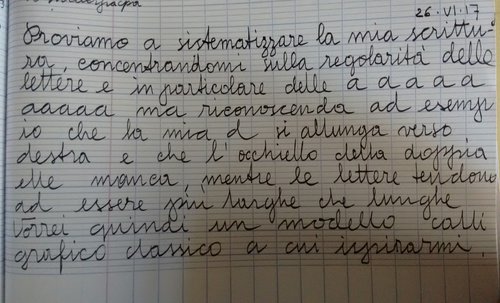 26·VI·17
Proviamo a sistematizzare la mia scrittu-
ra, concentrandomi sulla regolarità delle
lettere e in particolare delle a a a a a
aaaaa ma riconoscendo ad esemp
io che la mia d si allunga verso
destra e che l'occhiello della doppia
elle manca, mentre le lettere tendono
ad essere più larghe che lunghe
Vorrei quindi un modello calli
grafico classico a cui ispirarmi.